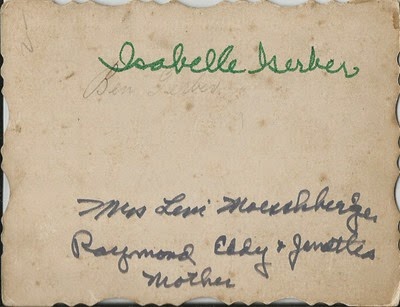 Isabelle Gerber
Ben Gerber
Mrs Levi Moeschberger
Raymond Eddy &
Mother